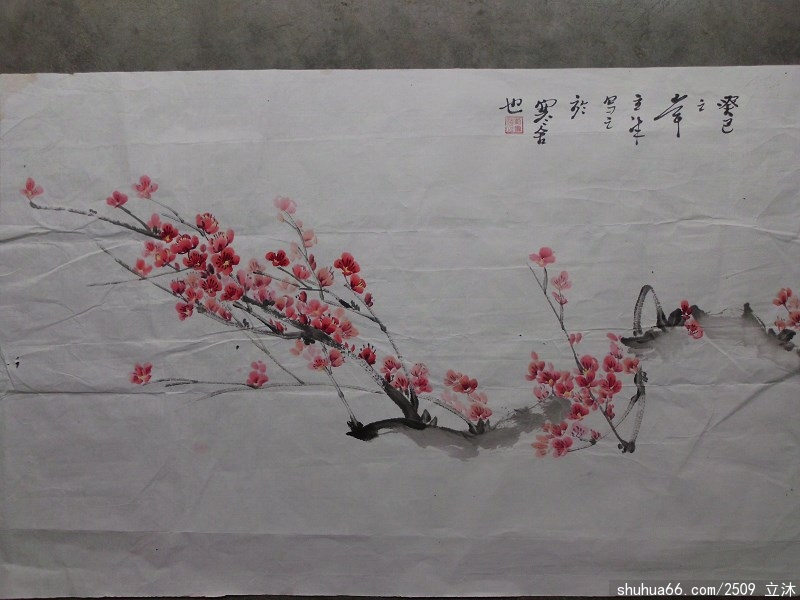 癸巳
之
年
立沐
写之
於
寒舍
也
shuhua66.com/2509 立沐